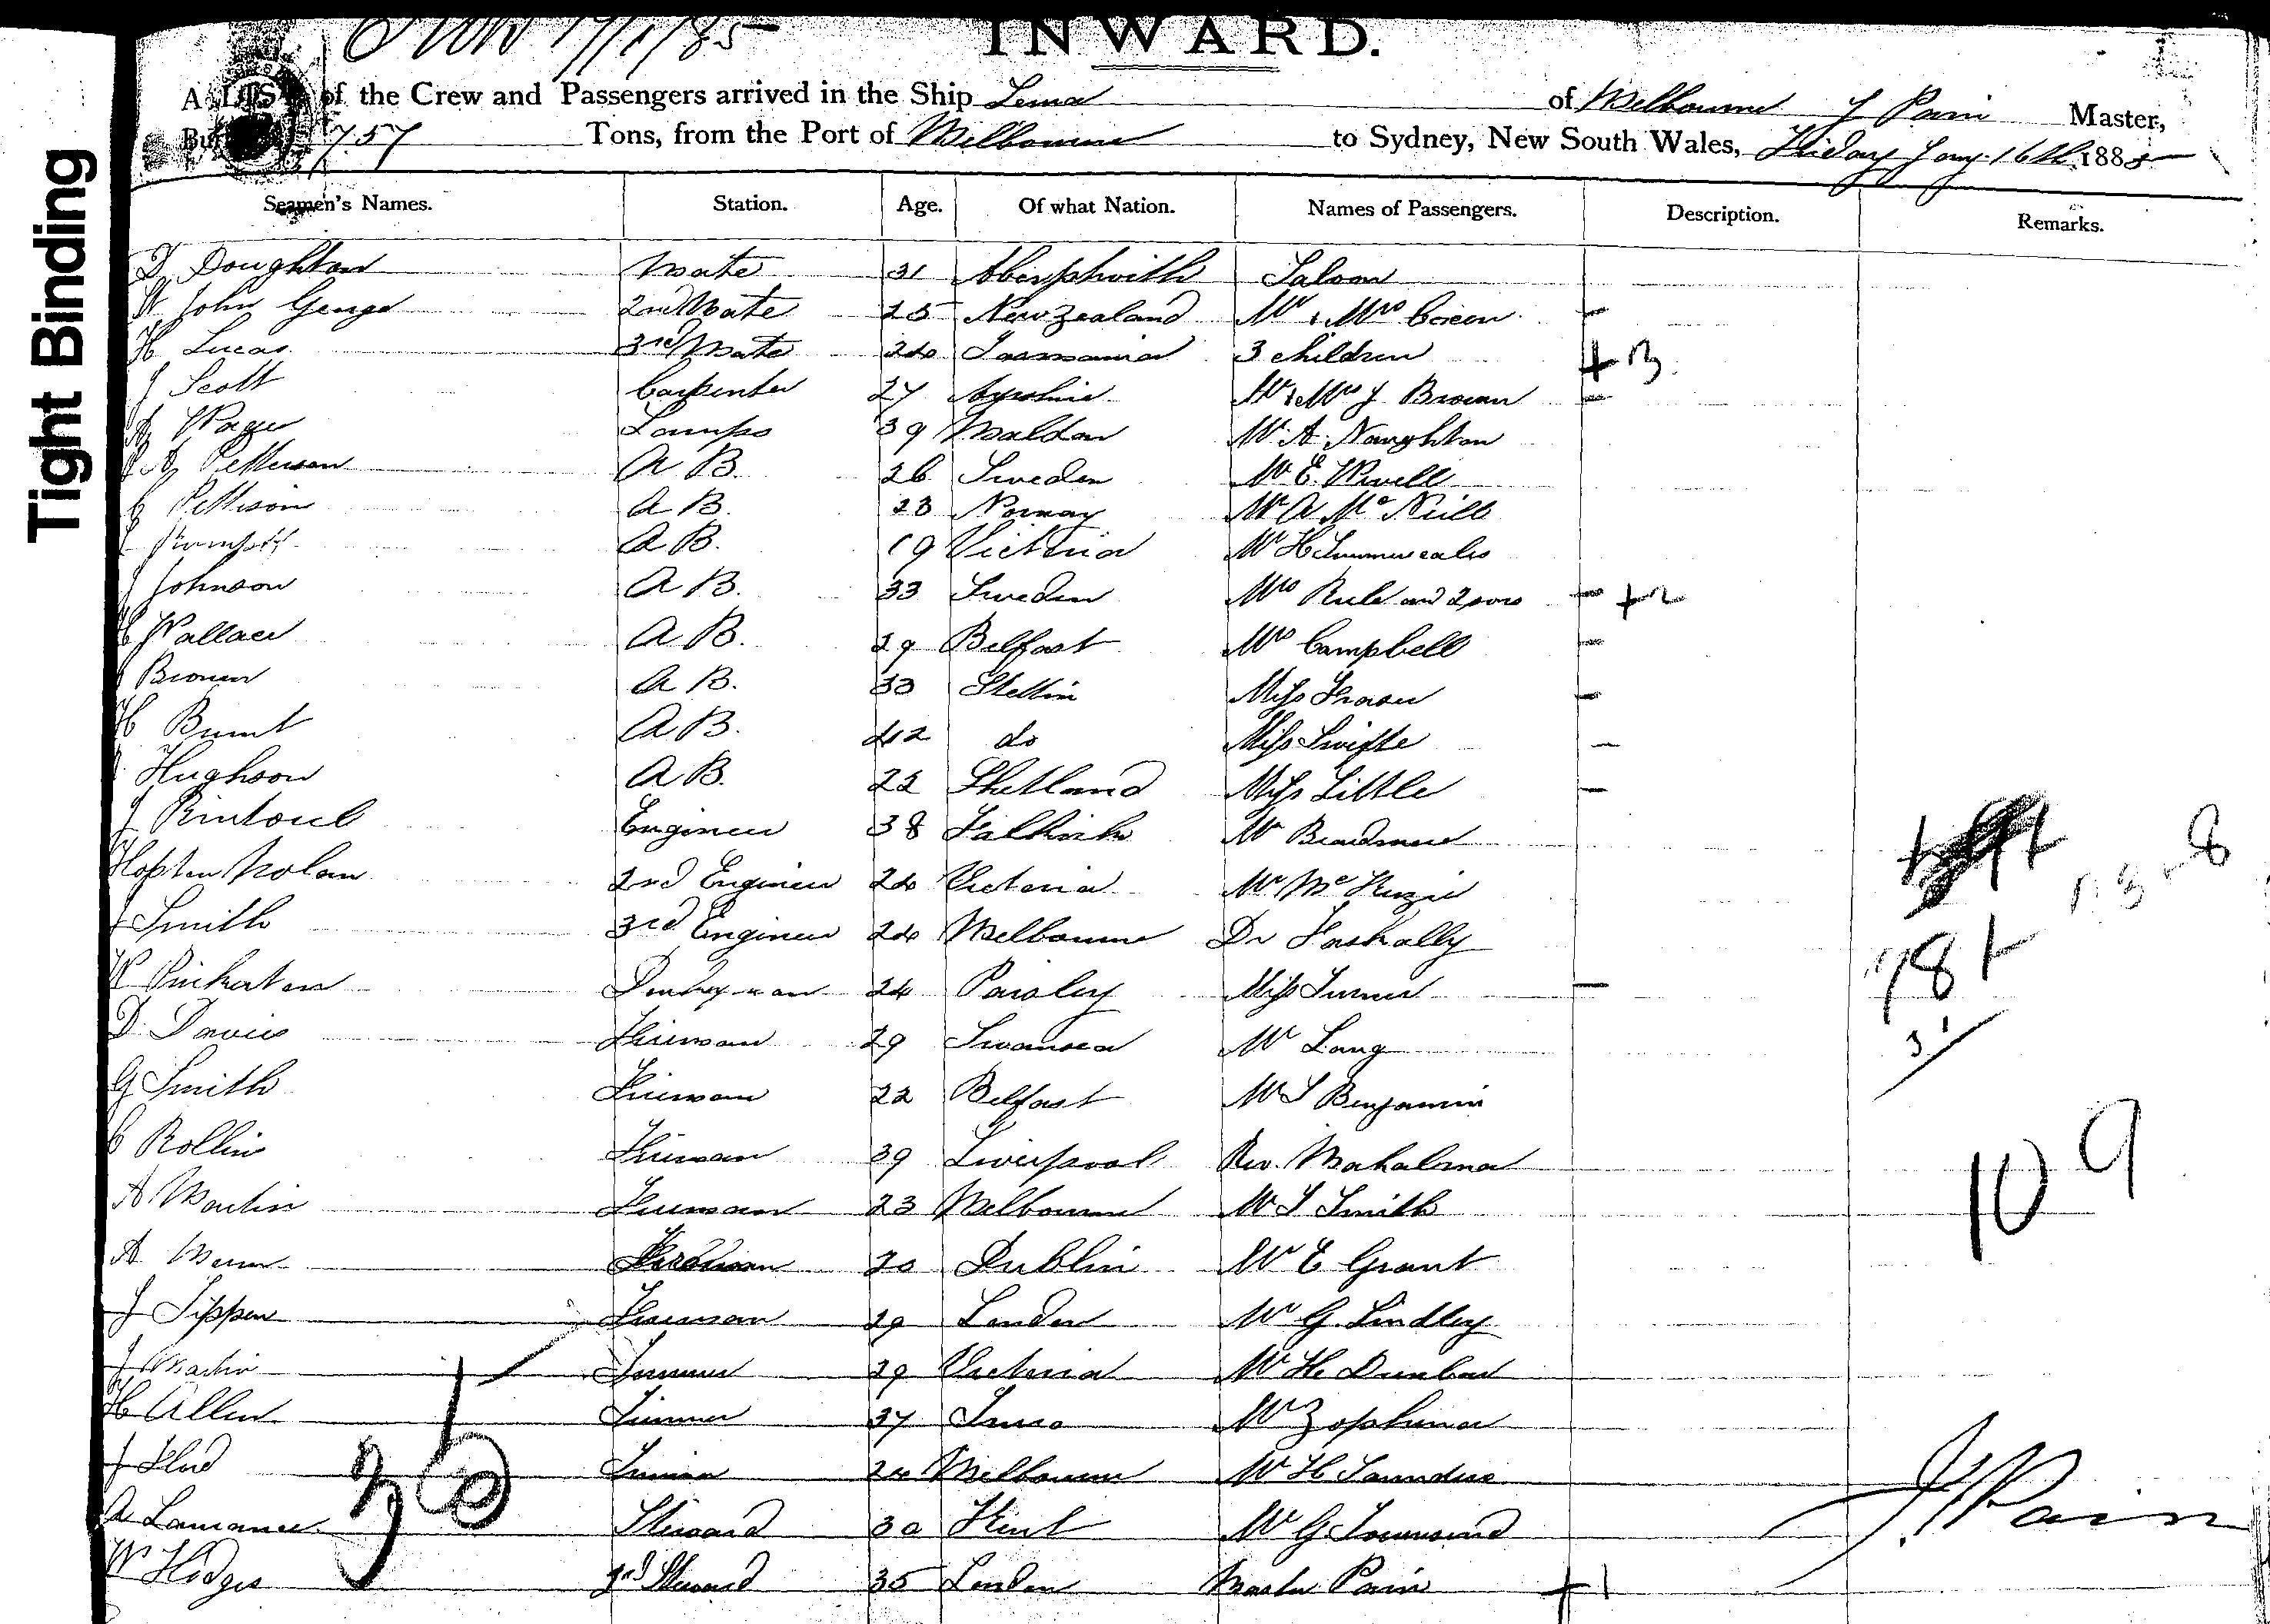 INWARD.
A LIST of the Crew and Passengers arrived in the Ship of Melbourne J Pain Master,
757 Tons, from the Port of Melbourne to Sydney, New South Wales, Friday Jany. 16th 1885
Tight Binding
Seamen's Names. Station. Age. Of what Nation. Names of Passengers. Description. Remarks.
D Doughton Mate 31 Saloon
W John George 2nd Mate 25 New Zealand Mr & Mrs Green
H Lucas 3rd Mate 24 Tasmania 3 children + 3
J Scott Carpenter 27 Ayrshire Mr & Mrs J Brown
Page Lamps 39 Maldon Mr A Naughton
Petterson A B. 26 Sweden Mr E.
C Pettison A B. 23 Norway Mr A McNeill
A B. 19 Victoria Mr H
J Johnson A B. 33 Sweden Mrs Rule and 2 sons + 2
Wallace A B. 29 Belfast Mrs Campbell
Brown A B. 33 Stettin Miss Fraser
H A B. 42 do Miss Swifte
Hughson A B. 22 Shetland Miss Little
J Rintoul Engineer 38 Falkirk Mr
Nolan 2nd Engineer 24 Victoria Mr McKenzie
J Smith 3rd Engineer 24 Melbourne Dr 78
W Pinkerton Donkeyman 24 Paisley Miss Turner
D Davies Fireman 29 Swansea Mr Lang
G Smith Fireman 22 Belfast Mr S Benjamin
C Rollins Fireman 39 Liverpool Rev. 109
A Martin Fireman 23 Melbourne Mr S Smith
A Fireman 20 Dublin Mr E Grant
J Tippen Fireman 29 London Mr G. Lindley
J Martin Trimmer 29 Victoria Mr H Dunbar
H Allen Trimmer 37 Mr
J Trimmer 24 Melbourne Mr H Saunders
36
A Lawrance Steward 30 Kent Mr G Townsend J Pain
W Hodges 2nd Steward 35 London Master Pain + 1